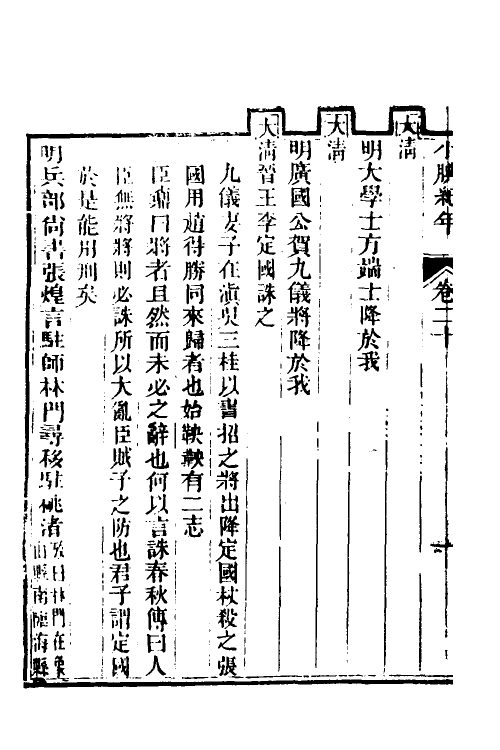 小腆紀年　卷二十
大淸
明大學士方端士降於我
大淸
明廣國公賀九儀將降於我
大淸晉王李定國誅之
九儀妻子在滇吳三桂以書招之將出降定國杖殺之張
國用趙得勝同來歸者也始鞅鞅有二志
臣鼒曰將者且然而未必之辭也何以言誅春秋傳曰人
臣無將將則必誅所以大亂臣賊子之防也君子謂定國
於是能用刑矣
明兵部尙書張煌言駐師林門尋移駐桃渚 林門在象
山縣南臨海縣